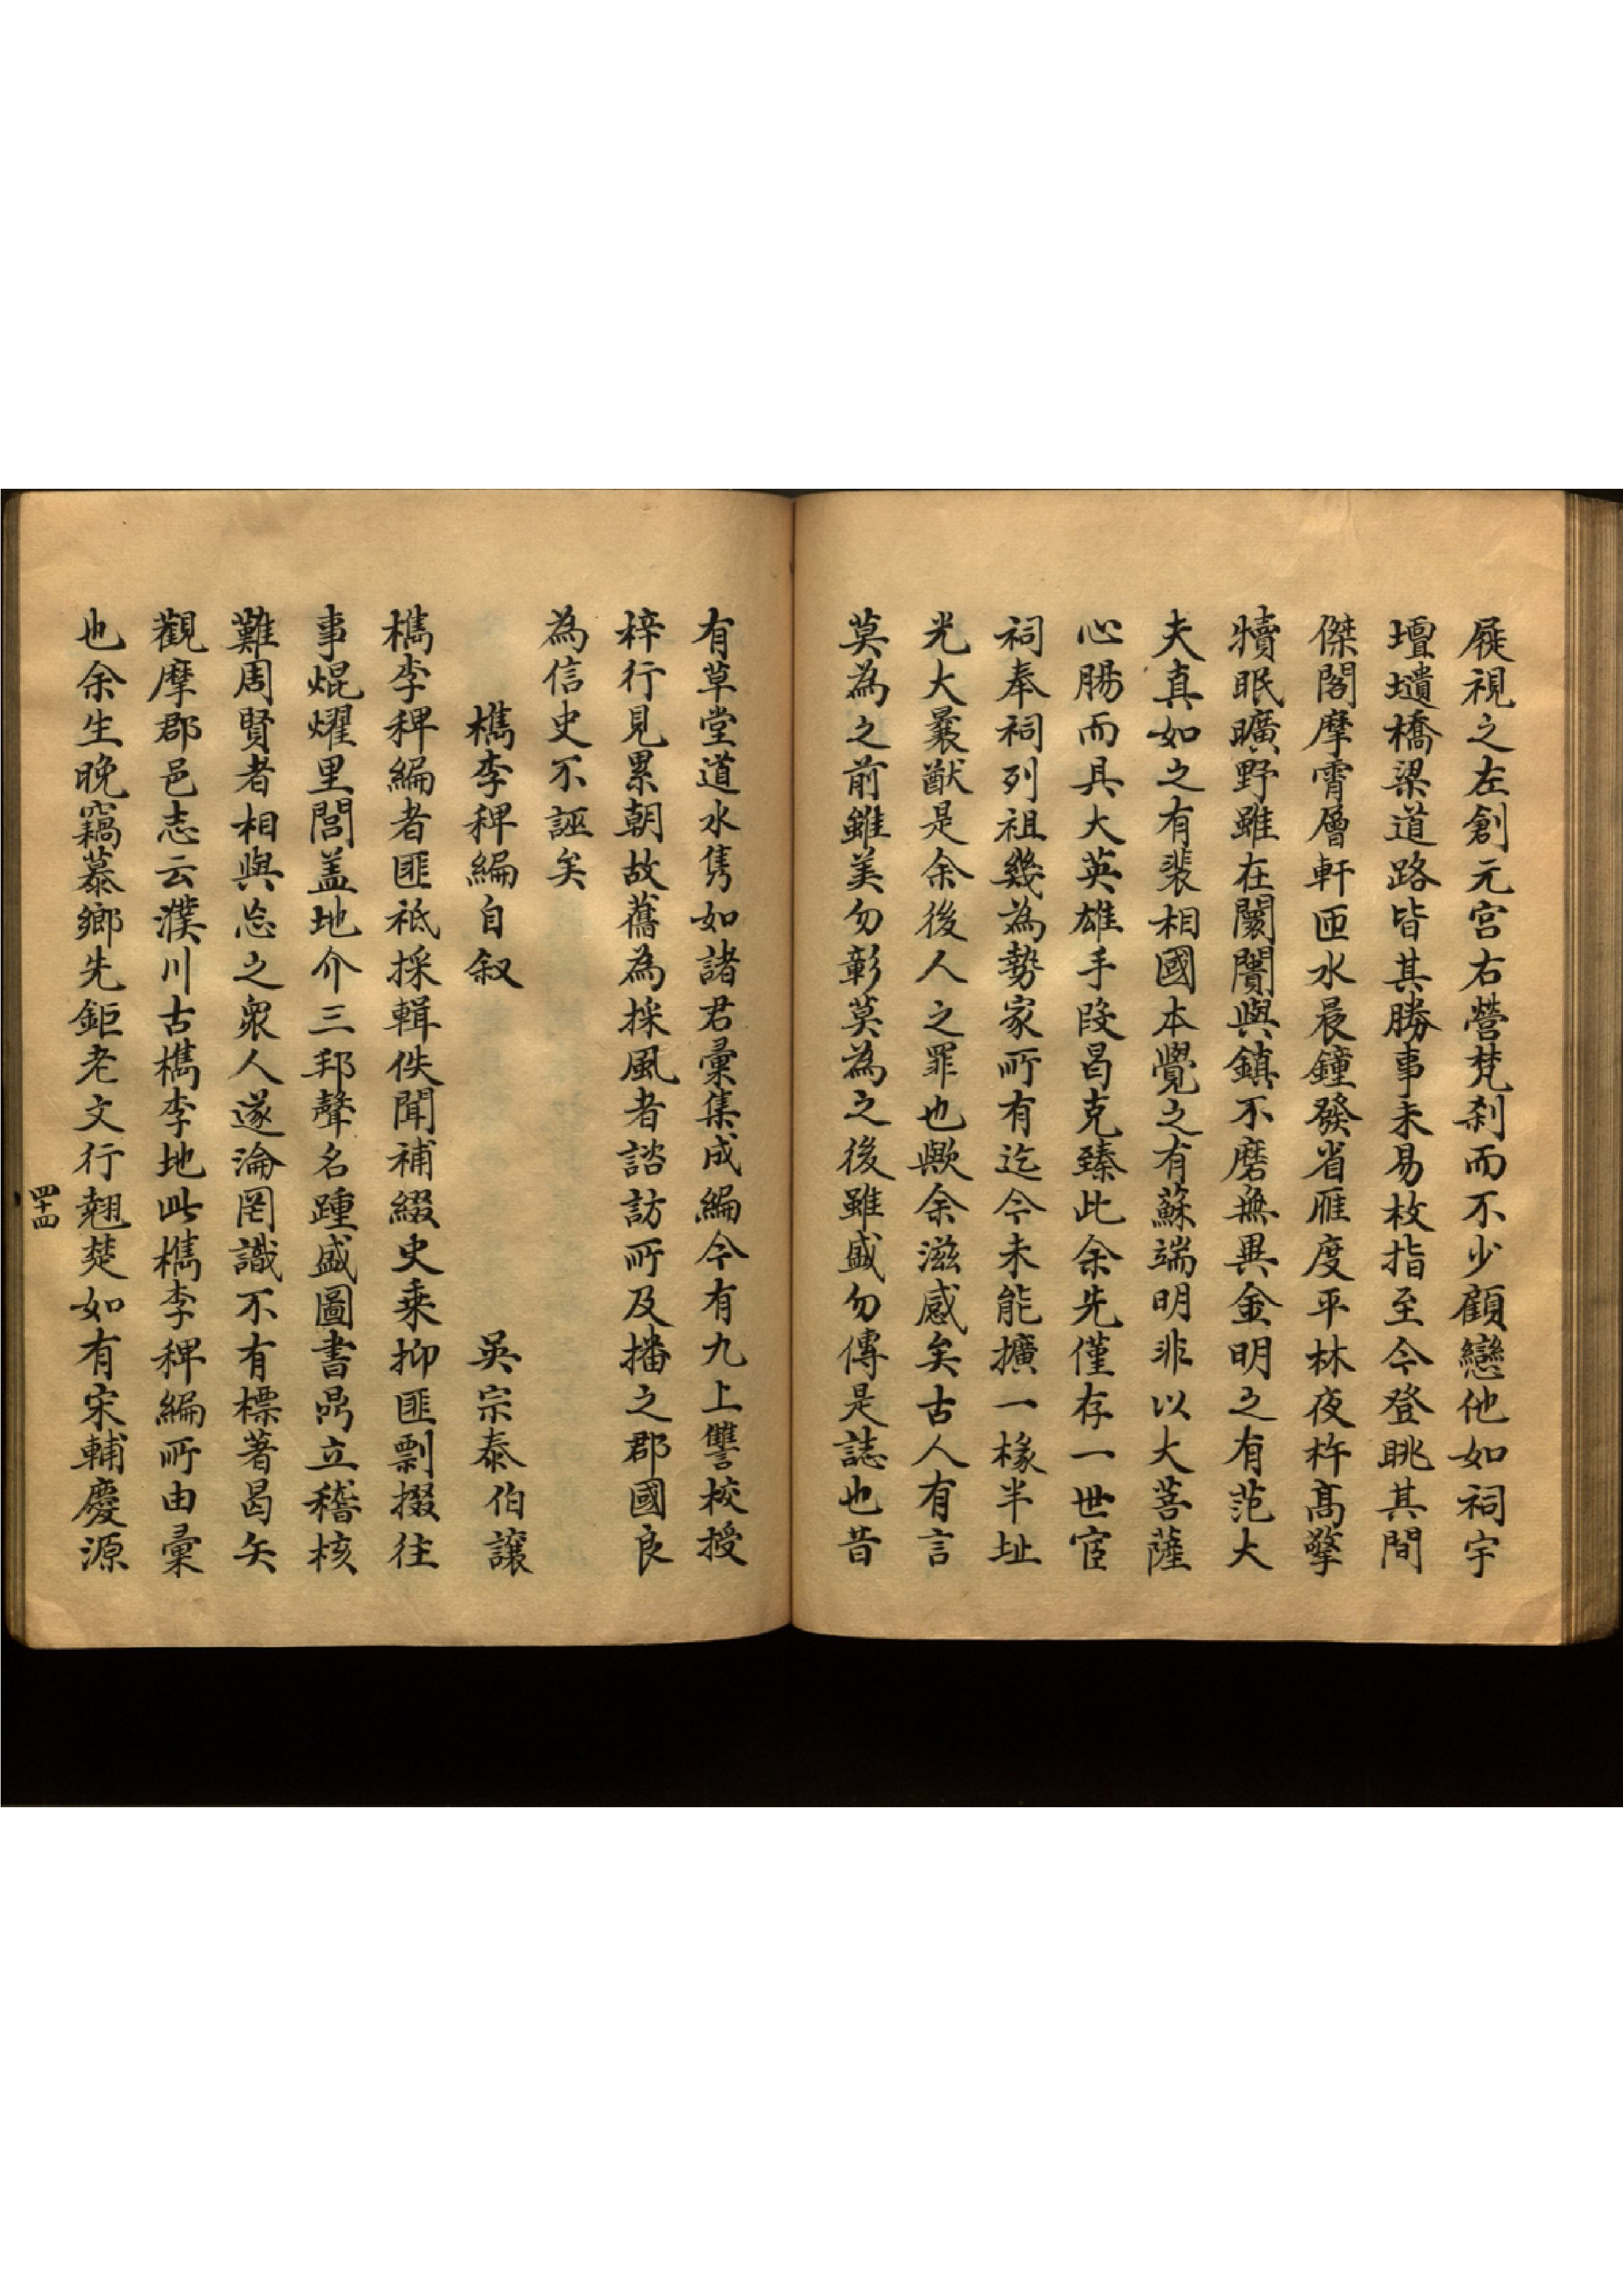 屣視之左創元宫右營梵刹而不少顧戀他如祠宇
壇壝橋梁道路皆其勝事未易枚指至今登眺其間
傑閣摩霄層軒匝水晨鐘發省雁度平林夜杵髙擎
犢眠曠野雖在闤闠與鎮不磨無異金明之有范大
夫真如之有裴相國本覺之有蘇端明非以大菩薩
心腸而具大英雄手段曷克臻此余先僅存一世宦
祠奉祠列祖幾為勢家所有迄今未能擴一椽半址
光大曩猷是余後人之罪也歟余滋感矣古人有言
莫為之前雖美勿彰莫為之後雖盛勿傳是誌也昔
有草堂道水雋如諸君彙集成編今有九上讐校授
梓行見累朝故舊為採風者諮訪所及播之郡國良
為信史不誣矣
檇李稗編自叙
吳宗泰伯讓
檇李稗編者匪祗採輯佚聞補綴史乗抑匪剽掇往
事焜燿里閭盖地介三邦聲名踵盛圖書鼎立稽核
難周賢者相與忘之衆人遂淪罔識不有標著曷矢
觀摩郡邑志云濮川古檇李地此檇李稗編所由彙
也余生晚竊慕鄉先鉅老文行翹楚如有宋輔慶源
四十四